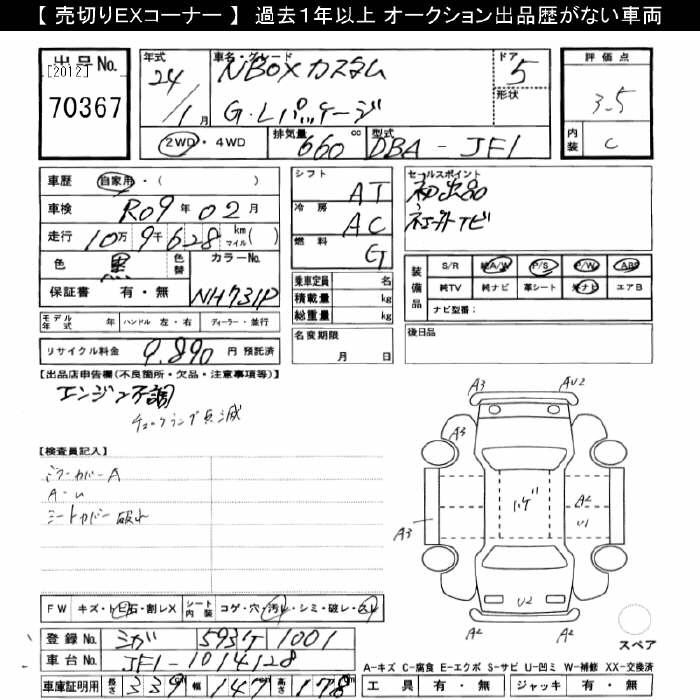 【 売切りEXコーナー 】 過去1年以上 オークション出品歴がない車両
出 品 No.
[2012]
70367
年式 24 / 1 月
車名・グレード NBOXカスタム
G・Lパッケージ
ドア 5
形状
評 価 点
3.5
内装 C
2WD ・ 4WD
排気量 660 cc
型式 DBA - JF1
車歴 自家用 ・( )
車検 R09 年 02 月
走行 10万 9千 628 km マイル ( )
色 黒 色替 カラーNo.
保証書 有 ・ 無 NH731P
シフト AT
冷房 AC
燃料 G
乗車定員 名
積載量 kg
総重量 kg
名変期限
月 日
セールスポイント
初出品
社外ナビ
装備品 S/R 純A/W P/S P/W ABS
純TV 純ナビ 革シート 社ナビ エアB
ナビ型番:
後日品
モデル年式 年 ハンドル 左 ・ 右 ディーラー ・ 並行
リサイクル料金 9,890 円 預託済
【出品店申告欄(不良箇所・欠品・注意事項等)】
エンジン不調
チェックランプ点滅
【検査員記入】
ミラーカバーA
A-U
シートカバー 破れ
A3 AU2
A3
A3
ハゲ
A2
U1
U2
A2 A2
スペア
FW キズ・トビ石・割レX シート内装 コゲ・穴・汚レ・シミ・破レ・スレ
登録 No. シガ 593ケ 1001
車台 No. JF1-1014128
車庫証明用 長さ 339 幅 147 高さ 178
A-キズ C-腐食 E-エクボ S-サビ U-凹ミ W-補修 XX-交換済
工 具 有 ・ 無 ジャッキ 有 ・ 無